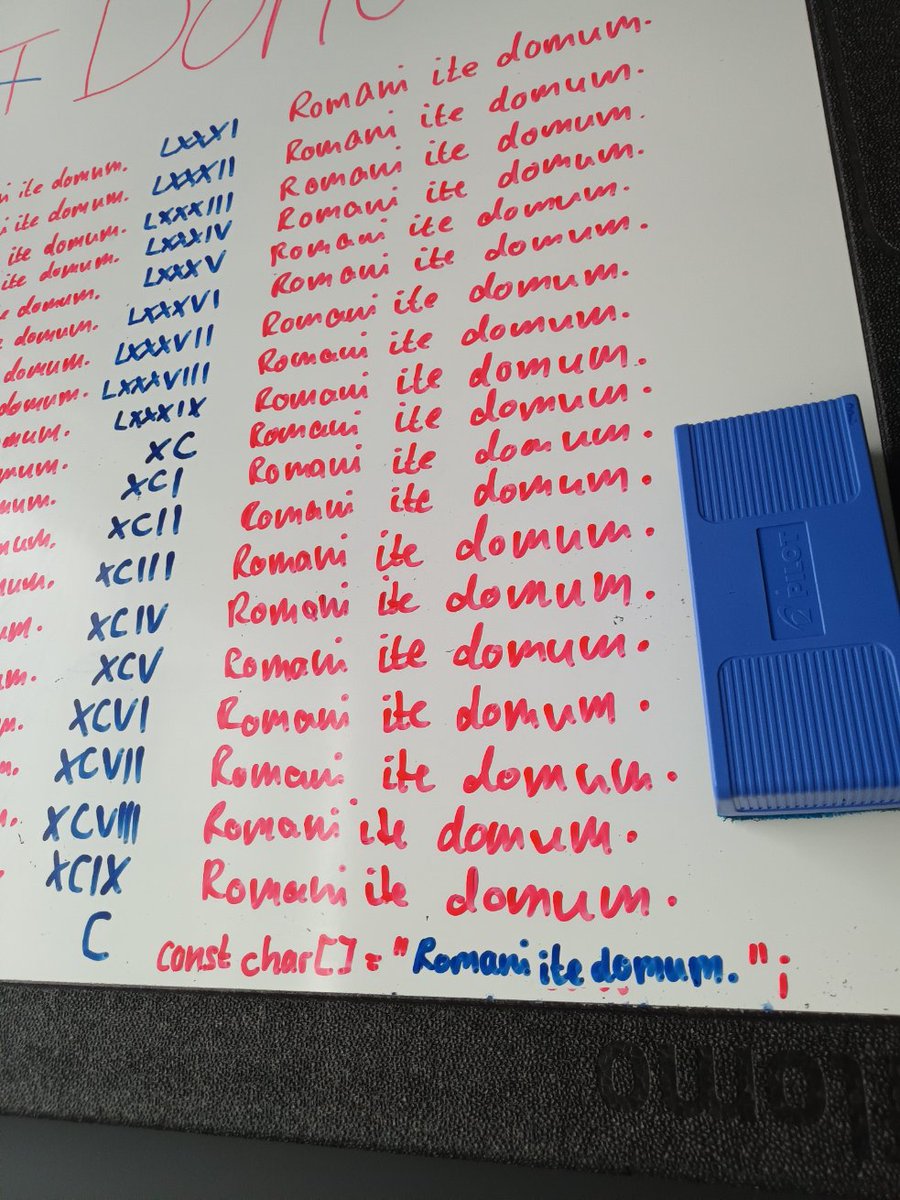 ite domum.
ite domum.
ite domum.
ite domum.
domum.
domum.
domum.
domum.
LXXXI Romani ite domum.
LXXXII Romani ite domum.
LXXXIII Romani ite domum.
LXXXIV Romani ite domum.
LXXXV Romani ite domum.
LXXXVI Romani ite domum.
LXXXVII Romani ite domum.
LXXXVIII Romani ite domum.
LXXXIX Romani ite domum.
XC Romani ite domum.
XCI Romani ite domum.
XCII Romani ite domum.
XCIII Romani ite domum.
XCIV Romani ite domum.
XCV Romani ite domum.
XCVI Romani ite domum.
XCVII Romani ite domum.
XCVIII Romani ite domum.
XCIX Romani ite domum.
C const char[] = "Romani ite domum.";
PILOT